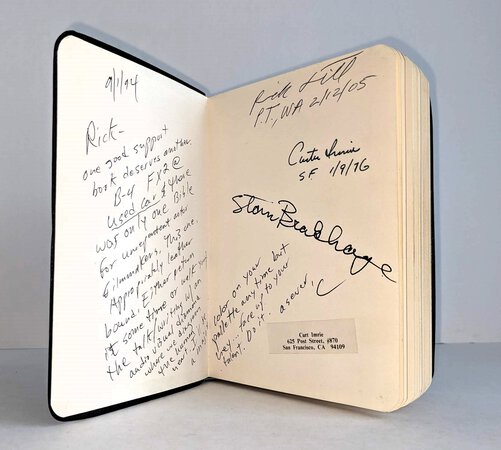 9/1/94
Rick-
one good support
book deserves another.
B-4 FY2@
Used Car & there
was only one Bible
for unrepentant
filmmakers. This one.
Appropriately leather
bound. Either return
it some time or walk
the talk/ writing w/ an
audio
where we
Rick
P.T., WA 2/12/05
Curtis Imrie
SF 1/9/76
Stan Brakhage
color on your
palette any time but
hey: face up to your
talent. Do it. as ever, C
Curt Imrie
625 Post Street, #870
San Francisco, CA 94109